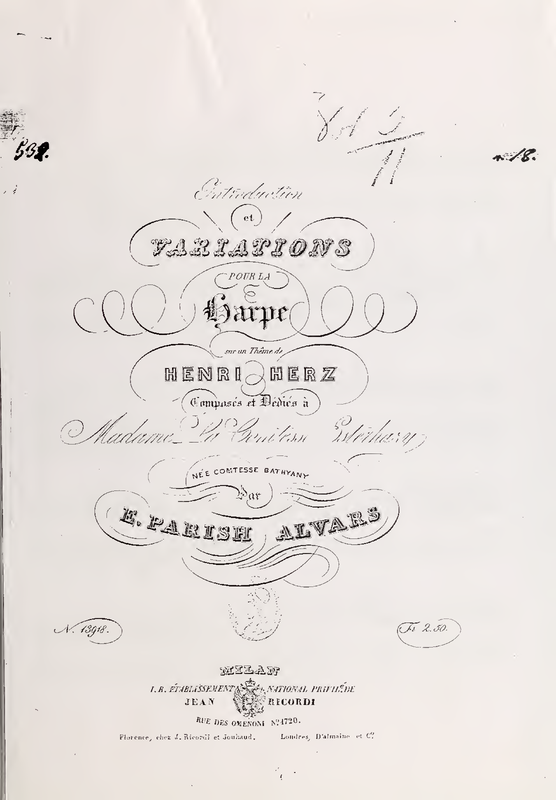 Vol 3
11
532.
No. 18.
Introduction
et
VARIATIONS
POUR LA
Harpe
sur un Thême de
HENRI HERZ
Composés et Dédiés à
Madame La Comtesse Esterhazy
NÉE COMTESSE BATHYANY
Par
E. PARISH ALVARS
N. 13918.
Fr 2.50.
MILAN
I. R. ÉTABLISSEMENT NATIONAL PRIVILÉ
JEAN RICORDI
RUE DES OMENONI N.º 1720.
Florence, chez J. Ricordi et Jouhaud. Londres, D'almaine et C.º